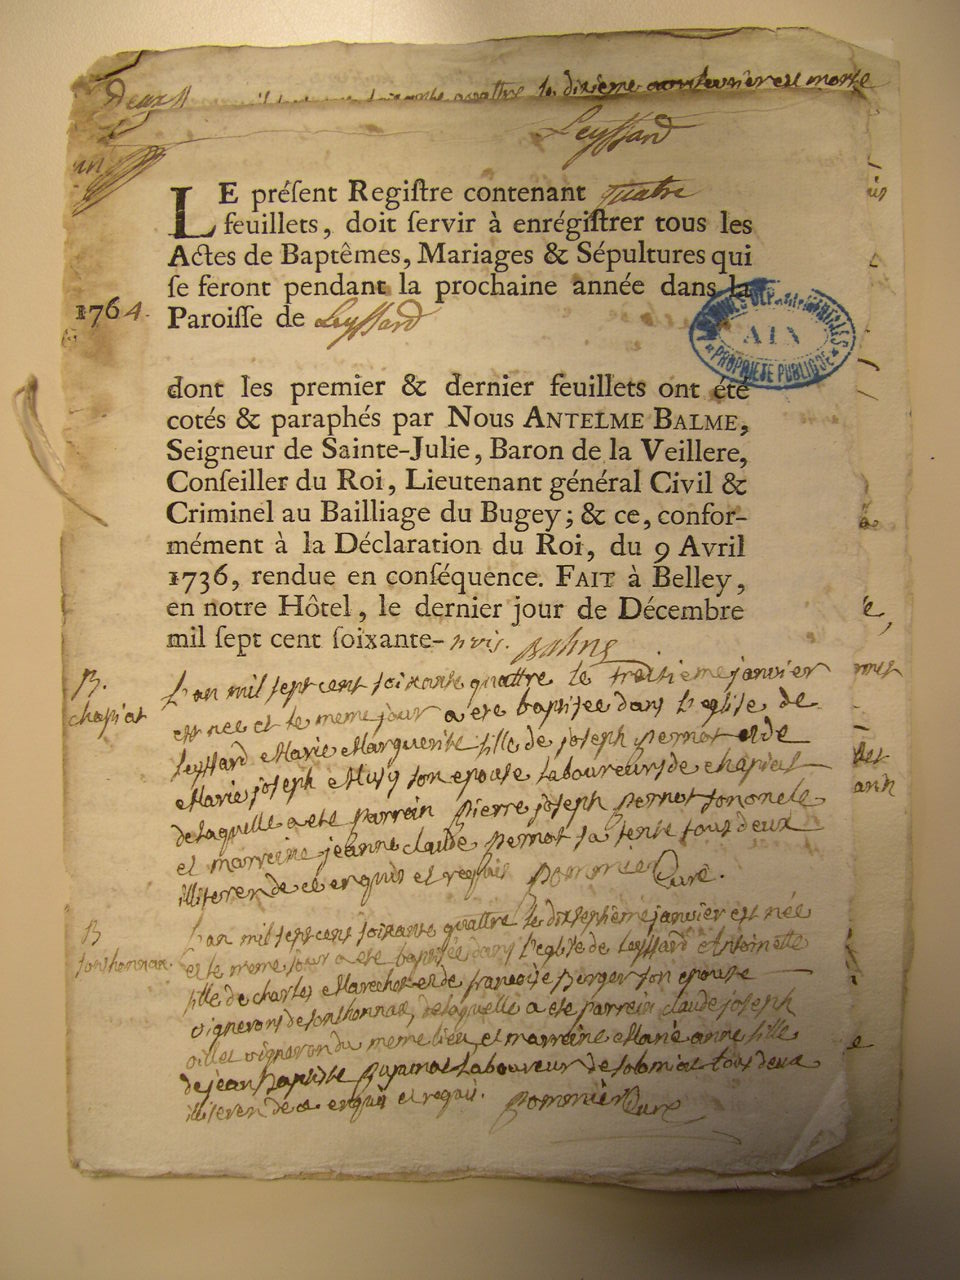 deux
le dixième est morte
Leyssard
un
LE préſent Regiſtre contenant quatre
feuillets, doit ſervir à enrégiſtrer tous les
Actes de Baptêmes, Mariages & Sépultures qui
ſe feront pendant la prochaine année dans la
1764. Paroiſſe de Leyssard
ARCHIVES DÉPARTEMENTALES
AIN
PROPRIÉTÉ PUBLIQUE
dont les premier & dernier feuillets ont été
cotés & paraphés par Nous ANTELME BALME,
Seigneur de Sainte-Julie, Baron de la Veillere,
Conſeiller du Roi, Lieutenant général Civil &
Criminel au Bailliage du Bugey; & ce, confor-
mément à la Déclaration du Roi, du 9 Avril
1736, rendue en conſéquence. FAIT à Belley,
en notre Hôtel, le dernier jour de Décembre
mil ſept cent ſoixante-trois. Balme
B.
chapiat
L'an mil sept cent soixante quattre le treisieme janvier
est nee et le meme jour a ete baptisee dans l'eglise de
leyssard Marie Marguerite fille de joseph pernot et de
Marie joseph son epouse laboureurs de chapiat
de laquelle a ete parrein pierre joseph pernot son oncle
et marreine jeanne claude pernot sa tente tous deux
illiteren de ce enquis et requis pommier Curé.
B
sonthonnax.
L'an mil sept cent soixante quattre le dixseptieme janvier est née
et le meme jour a ete baptisée dans l'eglise de leyssard Antoinette
fille de charles Marechot et de francoise Berger son epouse
vignerons de sonthonnax, de laquelle a ete parrein claude joseph
oillet vigneron du meme lieu et marreine Marie anne fille
de jean baptiste laboureur de solomiat tous deux
illiteren de ce enquis et requis. pommier Curé